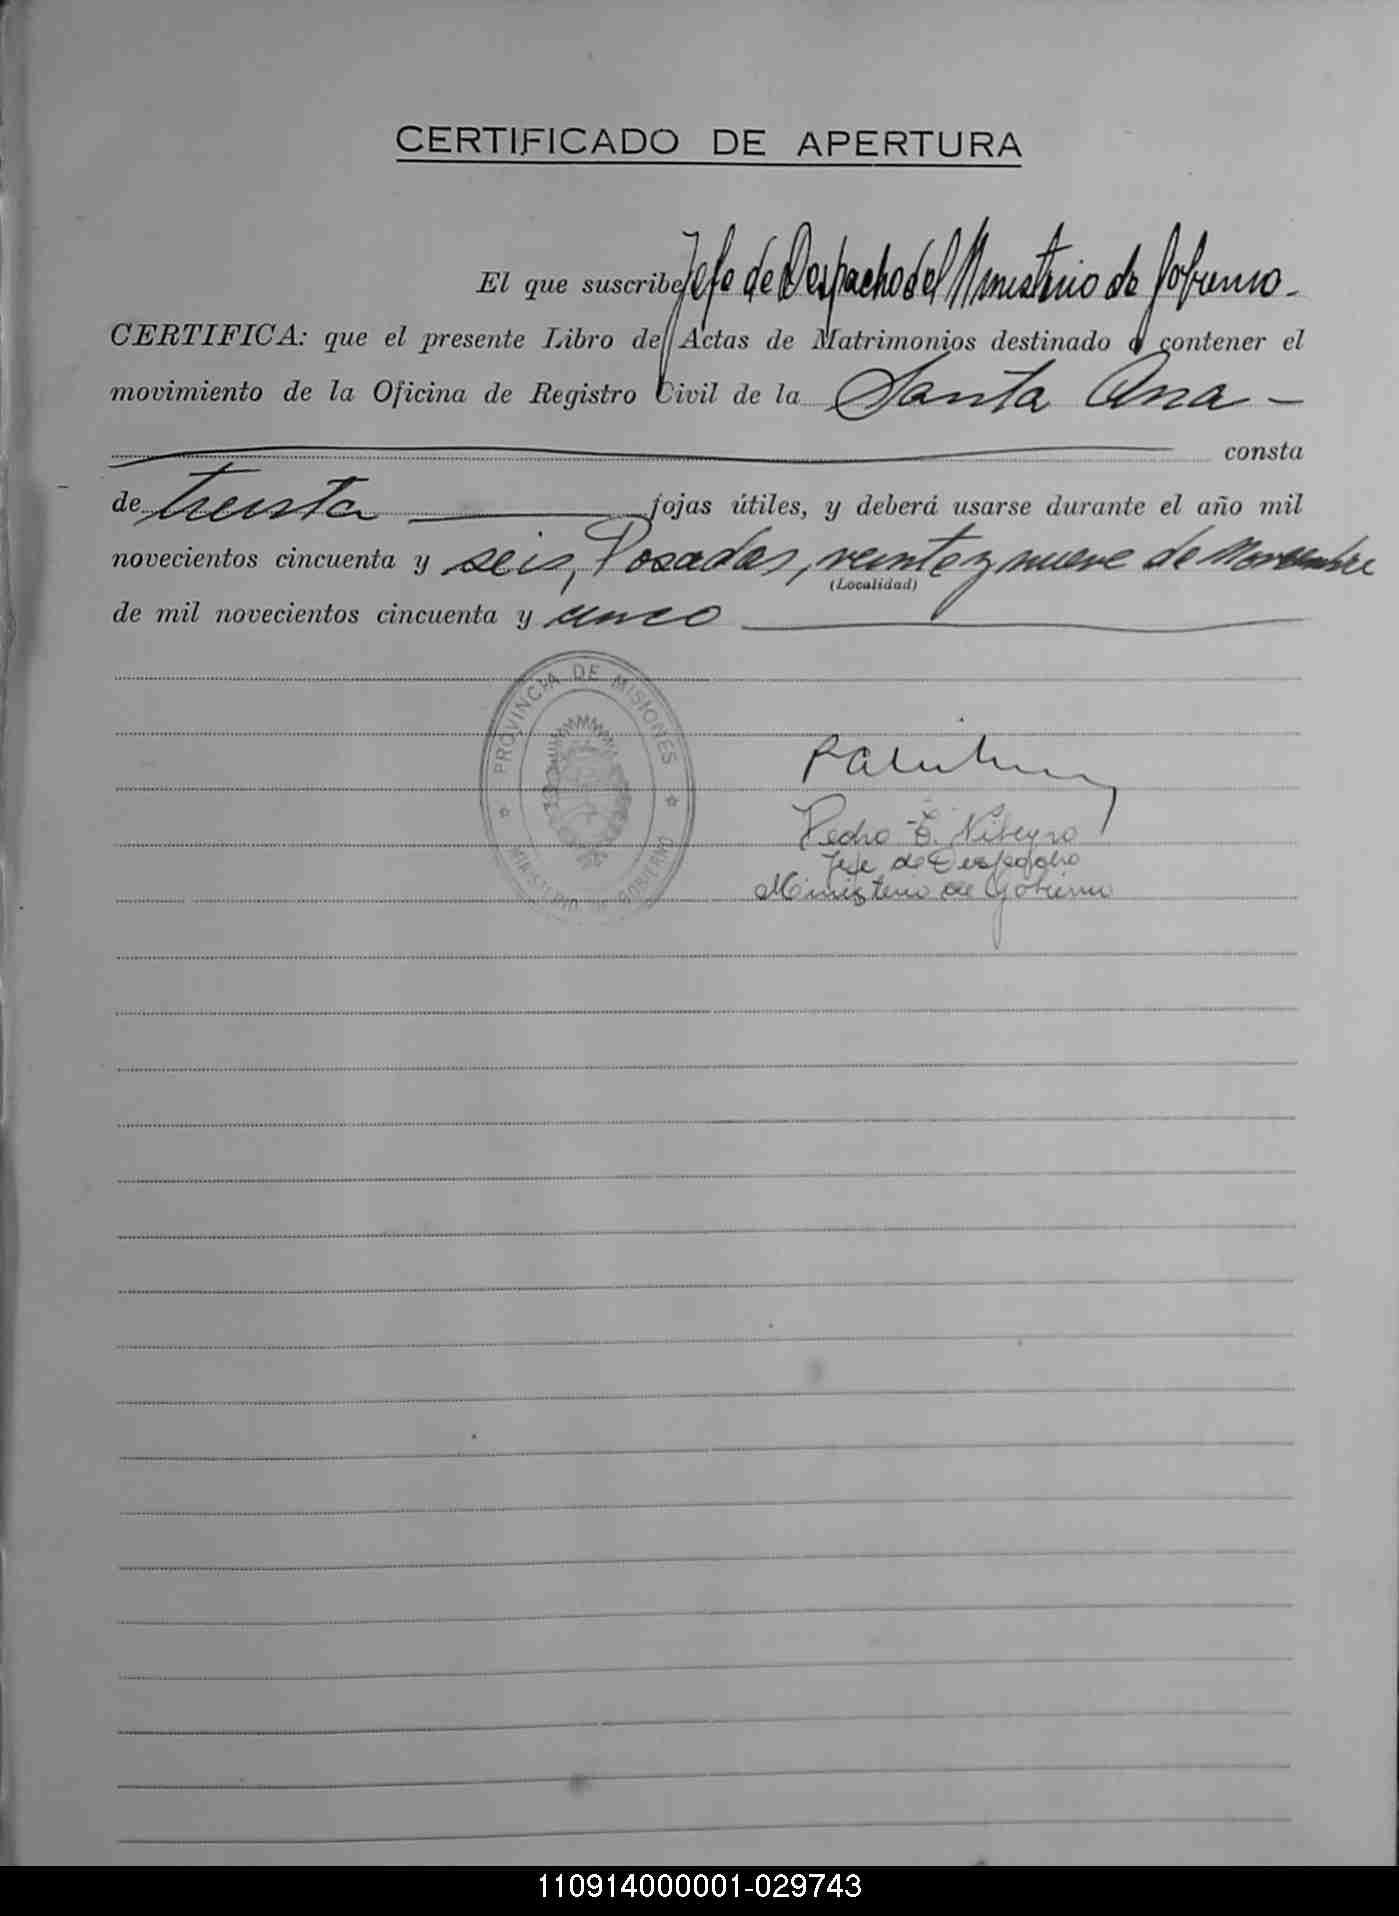 CERTIFICADO DE APERTURA
El que suscribe Jefe de Despacho del Ministerio de Gobierno.-
CERTIFICA: que el presente Libro de Actas de Matrimonios destinado a contener el
movimiento de la Oficina de Registro Civil de la Santa Ana -
consta
de treinta fojas útiles, y deberá usarse durante el año mil
novecientos cincuenta y seis, Posadas, veinte y nueve de Noviembre
(Localidad)
de mil novecientos cincuenta y cinco
PROVINCIA DE MISIONES
MINISTERIO DE GOBIERNO
Pedro E. Ribeyro
Jefe de Despacho
Ministerio de Gobierno
110914000001-029743